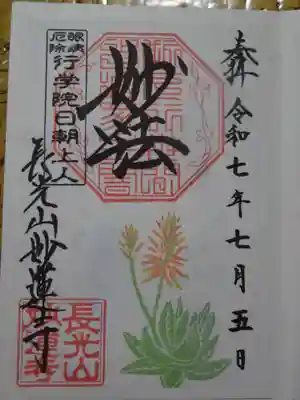 奉拝 令和七年七月五日
妙法
眼病
厄除
行学院日朝上人
長光山妙蓮寺
長光山
妙蓮寺